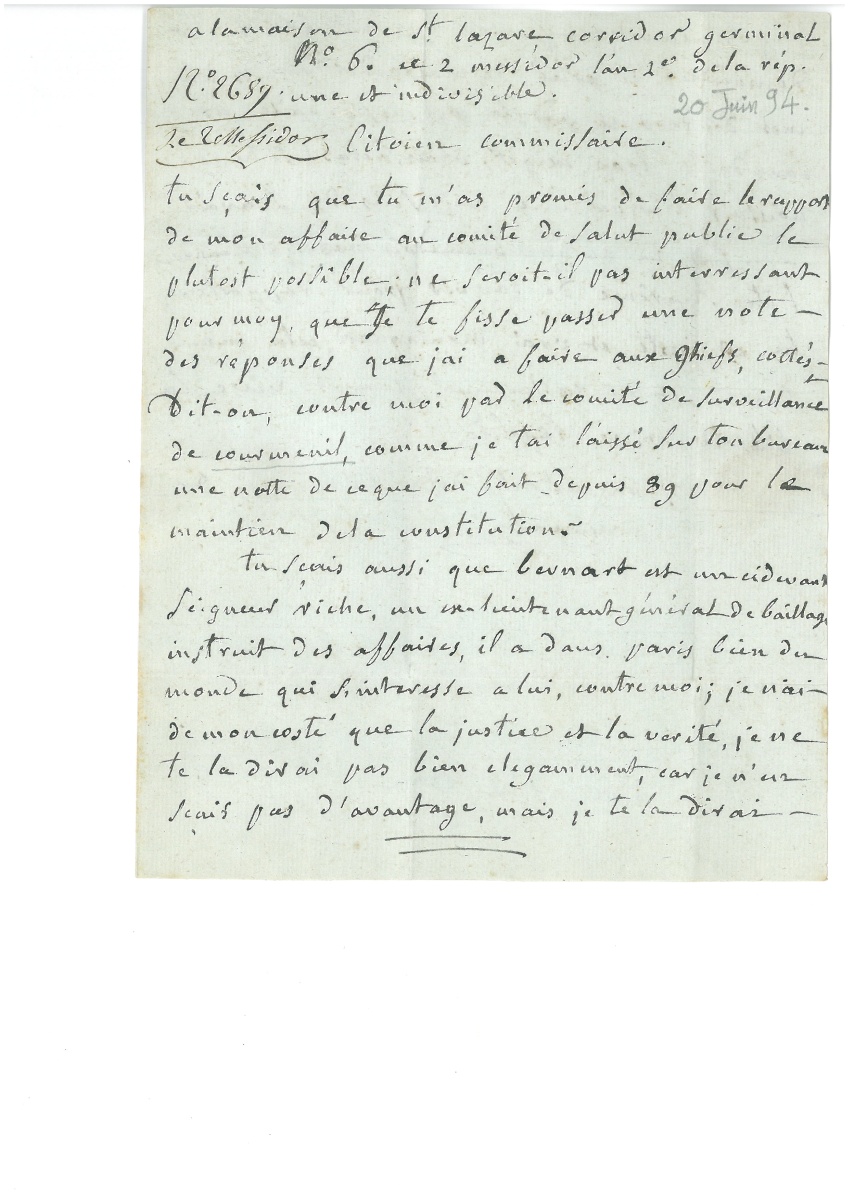 a la maison de St lazare corridor germinal
No. 6. ce 2 messidor l'an 2e. de la rép.
N.o 2689. une et indivisible.
20 Juin 94.
Le 2 Messidor Citoien commissaire.
tu sçais que tu m'as promis de faire le rapport
de mon affaire au comité de salut public le
plutost possible; ne seroit-il pas interressant
pour moy, que Je te fisse passer une note —
des réponses que jai a faire aux Chiefs, cottés-
Dit-on, contre moi par le comité de surveillance
de courmenil, comme je t'ai laissé sur ton bureau
une notte de ce que jai fait depuis 89 pour le
maintien de la constitution.
tu sçais aussi que bernart est un cidevant
seigneur riche, un ex-lieutenant général de baillage
instruit des affaires, il a dans paris bien du
monde qui s'interesse a lui, contre moi; je n'ai —
de mon costé que la justice et la verité, je ne
te la dirai pas bien elegamment, car je n'en
sçais pas d'avantage, mais je te la dirai —